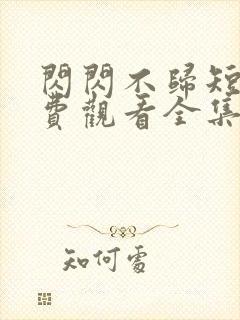 閃閃不歸短
費觀看全集
知何處